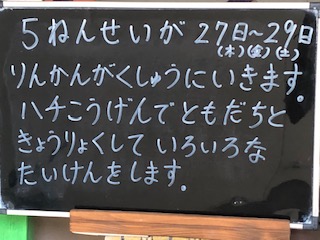 5ねんせいが 27日〜29日
(木)(金)(土)
りんかんがくしゅうにいきます。
ハチこうげんでともだちと
きょうりょくして いろいろな
たいけんをします。